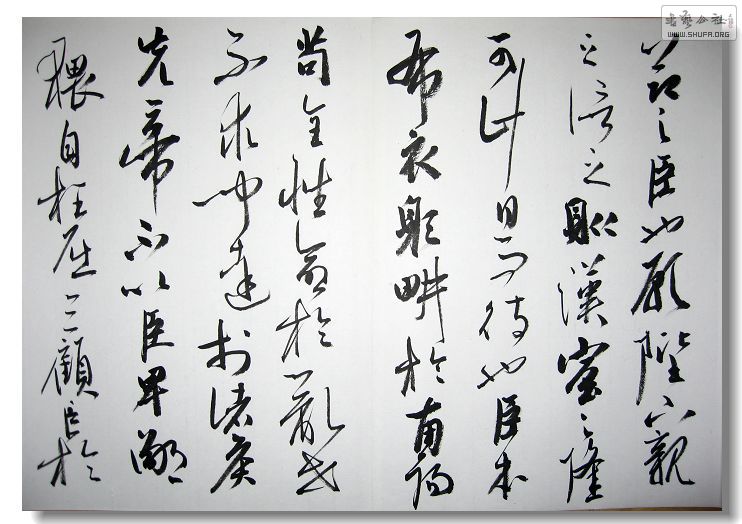 书艺公社
WWW.SHUFA.ORG
節之臣也願陛下親
之信之則漢室之隆
可計日而待也臣本
布衣躬畊於南陽
苟全性命於亂世
不求聞達於諸侯
先帝不以臣卑鄙
猥自枉屈三顧臣於